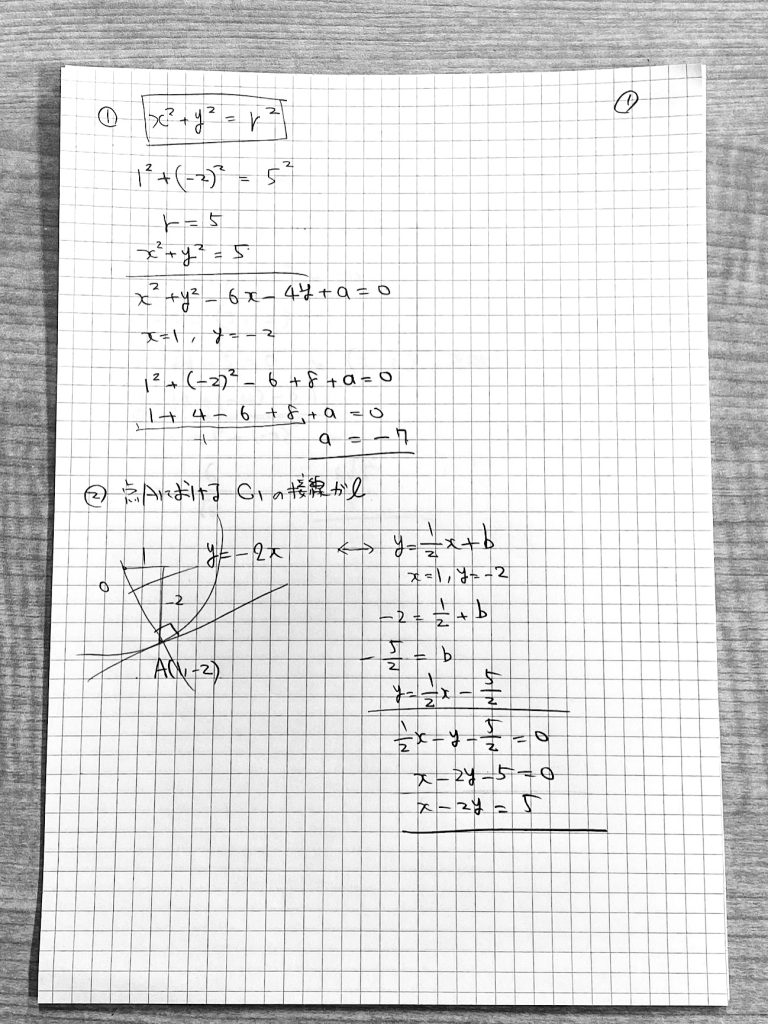 ① x² + y² = r²
①
1² + (-2)² = 5²
r = 5
x² + y² = 5
x² + y² - 6x - 4y + a = 0
x=1, y=-2
1² + (-2)² - 6 + 8 + a = 0
1 + 4 - 6 + 8 + a = 0
a = -7
② 点Aにおける C₁の接線がl
1
y=-2x
0
-2
A(1,-2)
↔ y=1/2x+b
x=1, y=-2
-2 = 1/2 + b
-5/2 = b
y=1/2x - 5/2
1/2x - y - 5/2 = 0
x - 2y - 5 = 0
x - 2y = 5